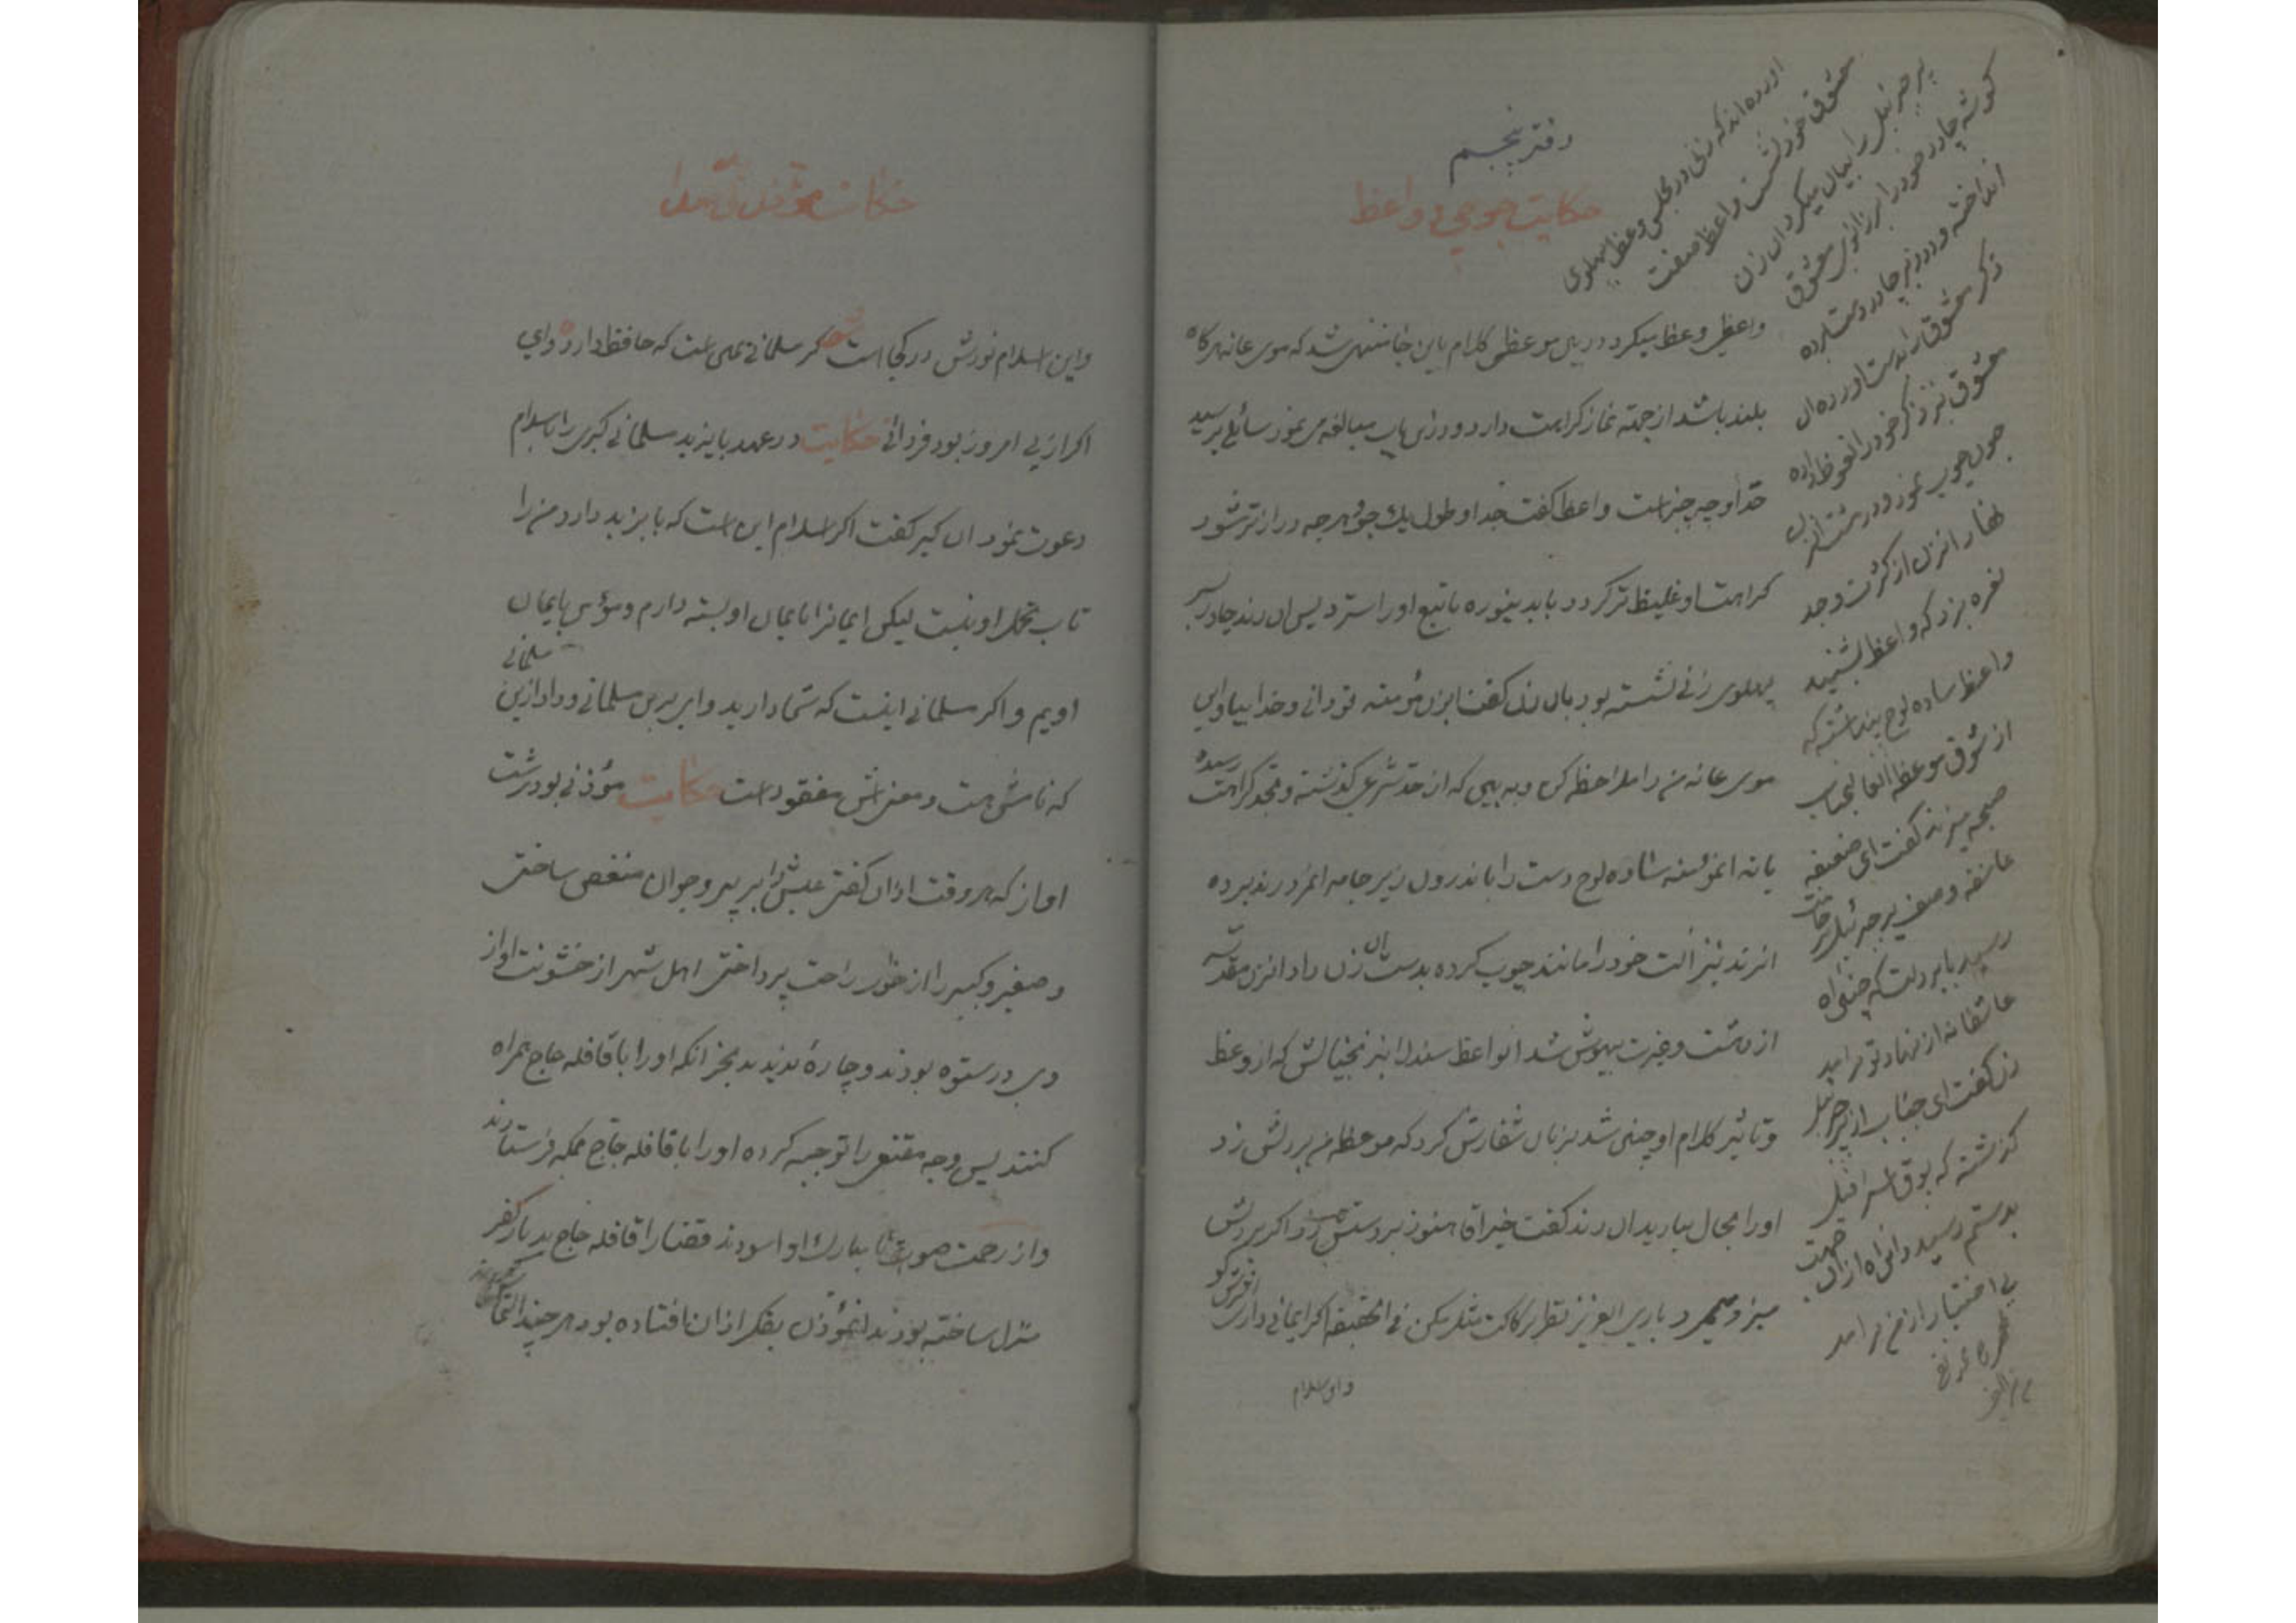 دفتر پنجم
حکایت جوحی و واعظ
واعظی وعظ میکرد در بین موعظه کلام باین جا منتهی شد که موی عانه هرکاه
بلند باشد از جهته نماز کراهت دارد و درین باب مبالغه می نمود سائلی پرسید
حد او چه چیز است واعظ کفت حد او طول یک جو هرچه درازتر شود
کراهت او غلیظ تر کردد باید بنوره یا تیغ او را استرد پس ان رند چادر بسر
پهلوی زنی نشسته بود بان زن کفت ایزن مؤمنه تو دانی و خدا بیا و این
موی عانه من را ملاحظه کن و به بین که از حد شرعی کذشته و بحد کراهت رسیده
یا نه انمؤمنه ساده لوح دست را باندرون زیر جامه انمرد رند برده
انرند نیز الت خود را مانند چوب کرده بدست ان زن داد انزن مقدسه
از دهشت و غیرت بیهوش شد انواعظ سندل نیز بخیالش که از وعظ
و تاثیر کلام او چنین شد بزبان سفارش کرد که موعظه من بر دلش زد
او را بحال بیارید ان رند کفت خیر اقا هنوز بر دستش زد و اکر بر دلش
میزد میمرد باری العزیز نظر برکاکت مثل مکن فی الحقیقه اکر ایمانی داری
واین اسلام
اورده اند که زنی در مجلس وعظ پهلوی
معشوق خود نشست واعظ صفت
پر جبرئیل را بیان میکرد ان زن
کوشه چادر خود را بر زانوی معشوق
انداخته و در زیر چادر دست برده
ذکر معشوق را بدست اورده ان
معشوق نیز ذکر خود را نعوظ داده
چون چوب نمود و در دست ان زن
نهاد انزن از کثرت وجد
نعره بزد که واعظ بشنید
واعظ ساده لوح پنداشته که
از شوق موعظه انعالیجناب
صیحه میزند کفت ای ضعیفه
عاشقه وصف پر جبرئیل بر جانت
رسید یا بر دلت که چنین اه
عاشقانه از نهاد تو برامد
زن کفت ای جناب از پر جبرئیل
کذشته که بوق اسرافیل
بدستم رسید و این اه از ان جهت
بی اختیار از من برامد
حکایت مؤذن بد صدا
واین اسلام نورش در کجا است شعر کر مسلمانی همین است که حافظ دارد وای
اکر از پی امروز بود فردائی حکایت در عهد بایزید مسلمانی کبری را باسلام
دعوت نمود ان کبر کفت اکر اسلام این است که بایزید دارد من را
تاب تحمل او نیست لیکن ایمانرا بایمان او بسته دارم و مؤمن بایمان
اویم و اکر مسلمانی اینست که شما دارید وای برین مسلمانی و داد ازین مسلمانی
که نامش هست و معنی اش مفقود است حکایت مؤذنی بود درشت
اواز که هر وقت اذان کفتی عیش را بر پیر و جوان منغص ساختی
و صغیر و کبیر را از خواب راحت پرداختی اهل شهر از خشونت اواز
وی در ستوه بودند و چارهٔ ندیدند بجز انکه او را با قافله حاج همراه
کنند پس وجه مقنعی را توجیه کرده او را با قافله حاج بمکه فرستادند
و از زحمت صوت نا مبارک او اسودند قضا را قافله حاج بدیار کفر
منزل ساخته بودند انمؤذن بفکر اذان افتاده بود هر چند التماس